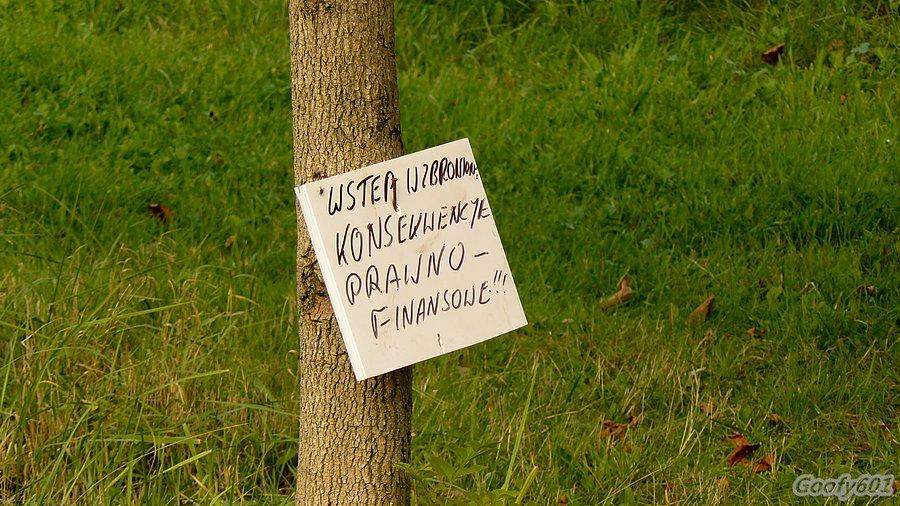 WSTĘP WZBRONIONY
KONSEKWENCJE
PRAWNO-
FINANSOWE!!!
Goofy601